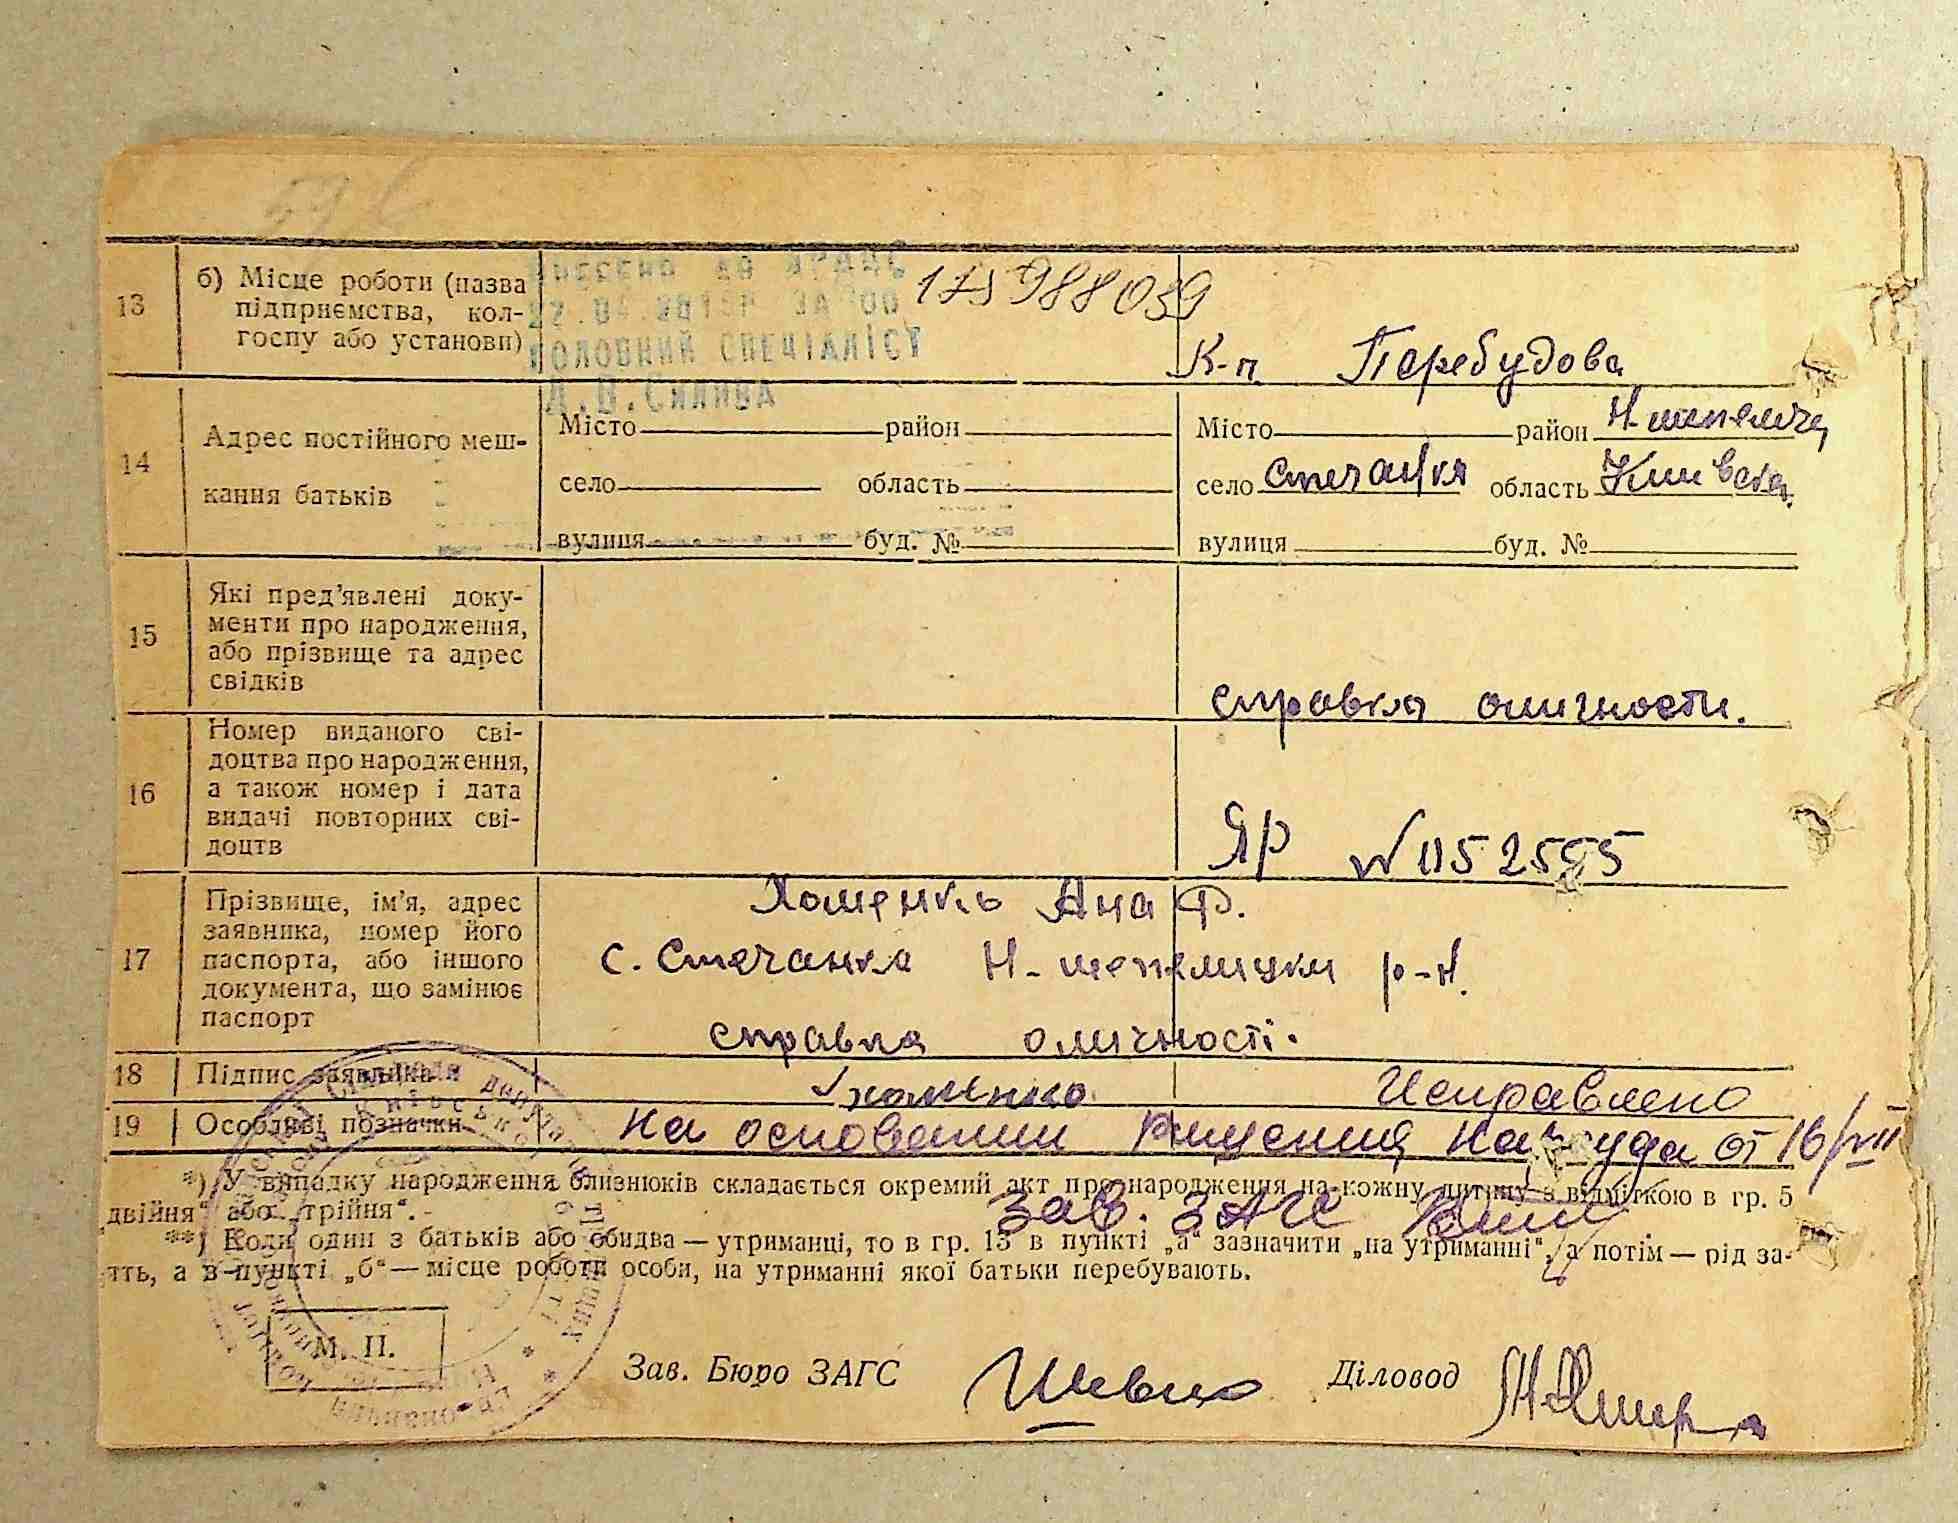 13
б) Місце роботи (назва
підприємства, кол-
госпу або установи)
ГОЛОВНИЙ СПЕЦІАЛІСТ
К-п Перебудова
14
Адрес постійного меш-
кання батьків
Місто район
село область
вулиця буд. №
Місто район
село Стечанка область Київська
вулиця буд. №
15
Які пред’явлені доку-
менти про народження,
або прізвище та адрес
свідків
справка оличности.
16
Номер виданого сві-
доцтва про народження,
а також номер і дата
видачі повторних сві-
доцтв
ЯР №
17
Прізвище, ім’я, адрес
заявника, номер його
паспорта, або іншого
документа, що замінює
паспорт
Хоменко Ана Ф.
с. Стечанка Н-шепелицки р-н.
справка оличності.
18 Підпис заявника
Исправлено
19 Особливі позначки
на основании решения нарсуда от 16/VII
*) У випадку народження близнюків складається окремий акт про народження на кожну дитину з відміткою в гр. 5
„двійня“ або „трійня“.
Зав. ЗАГС
**) Коли один з батьків або обидва — утриманці, то в гр. 13 в пункті „а“ зазначити „на утриманні“, а потім — рід за-
ять, а в пункті „б“ — місце роботи особи, на утриманні якої батьки перебувають.
М. П.
Зав. Бюро ЗАГС
Діловод